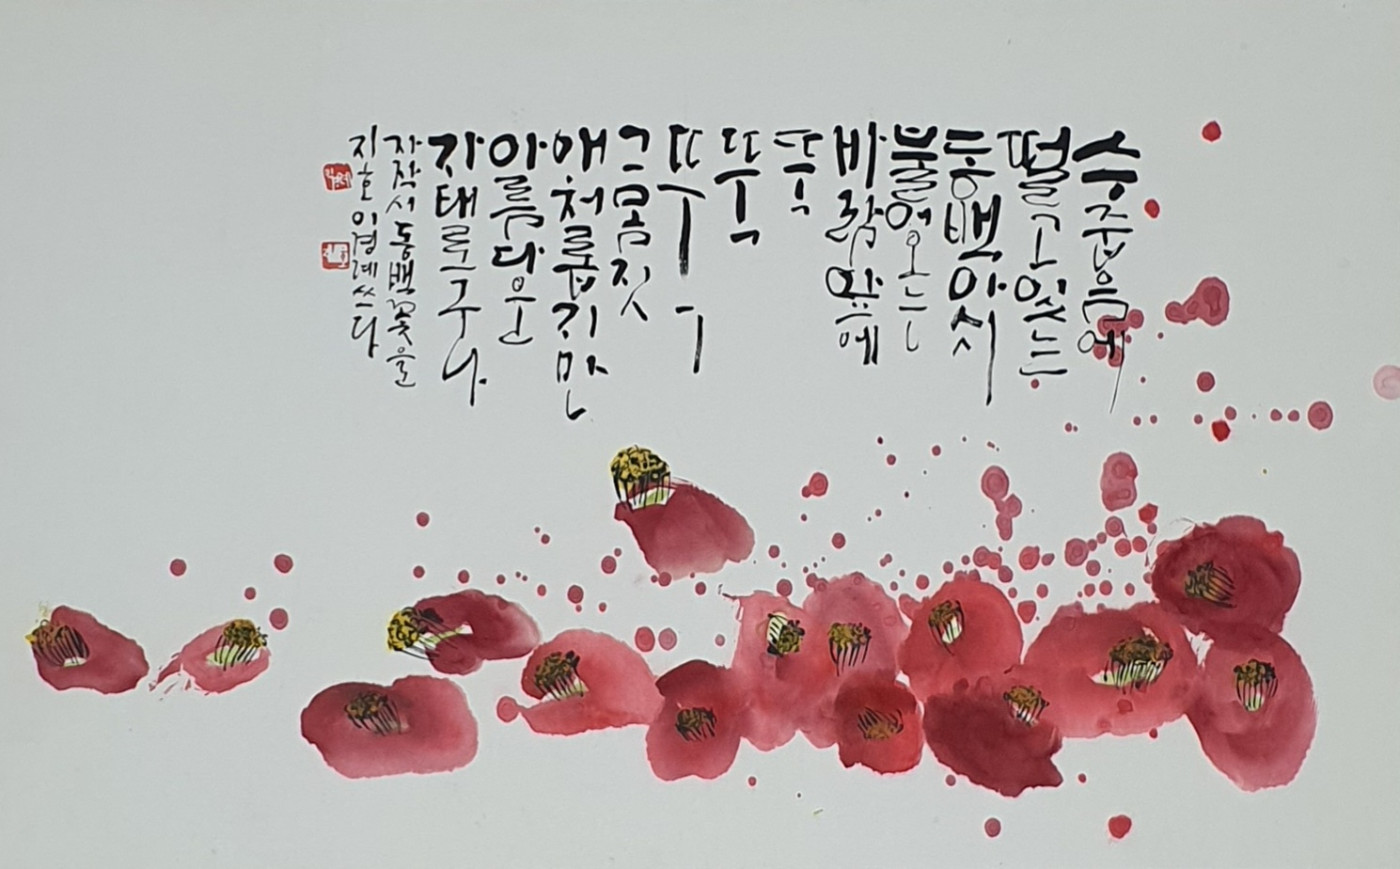 수줍음에
떨고 있는
동백아시
불어오는
바람앞에
뚝
뚝
뚝
그 몸짓
애처롭기만
아름다운
자태로구나
자작서 동백꽃을
지호 이경례 쓰다